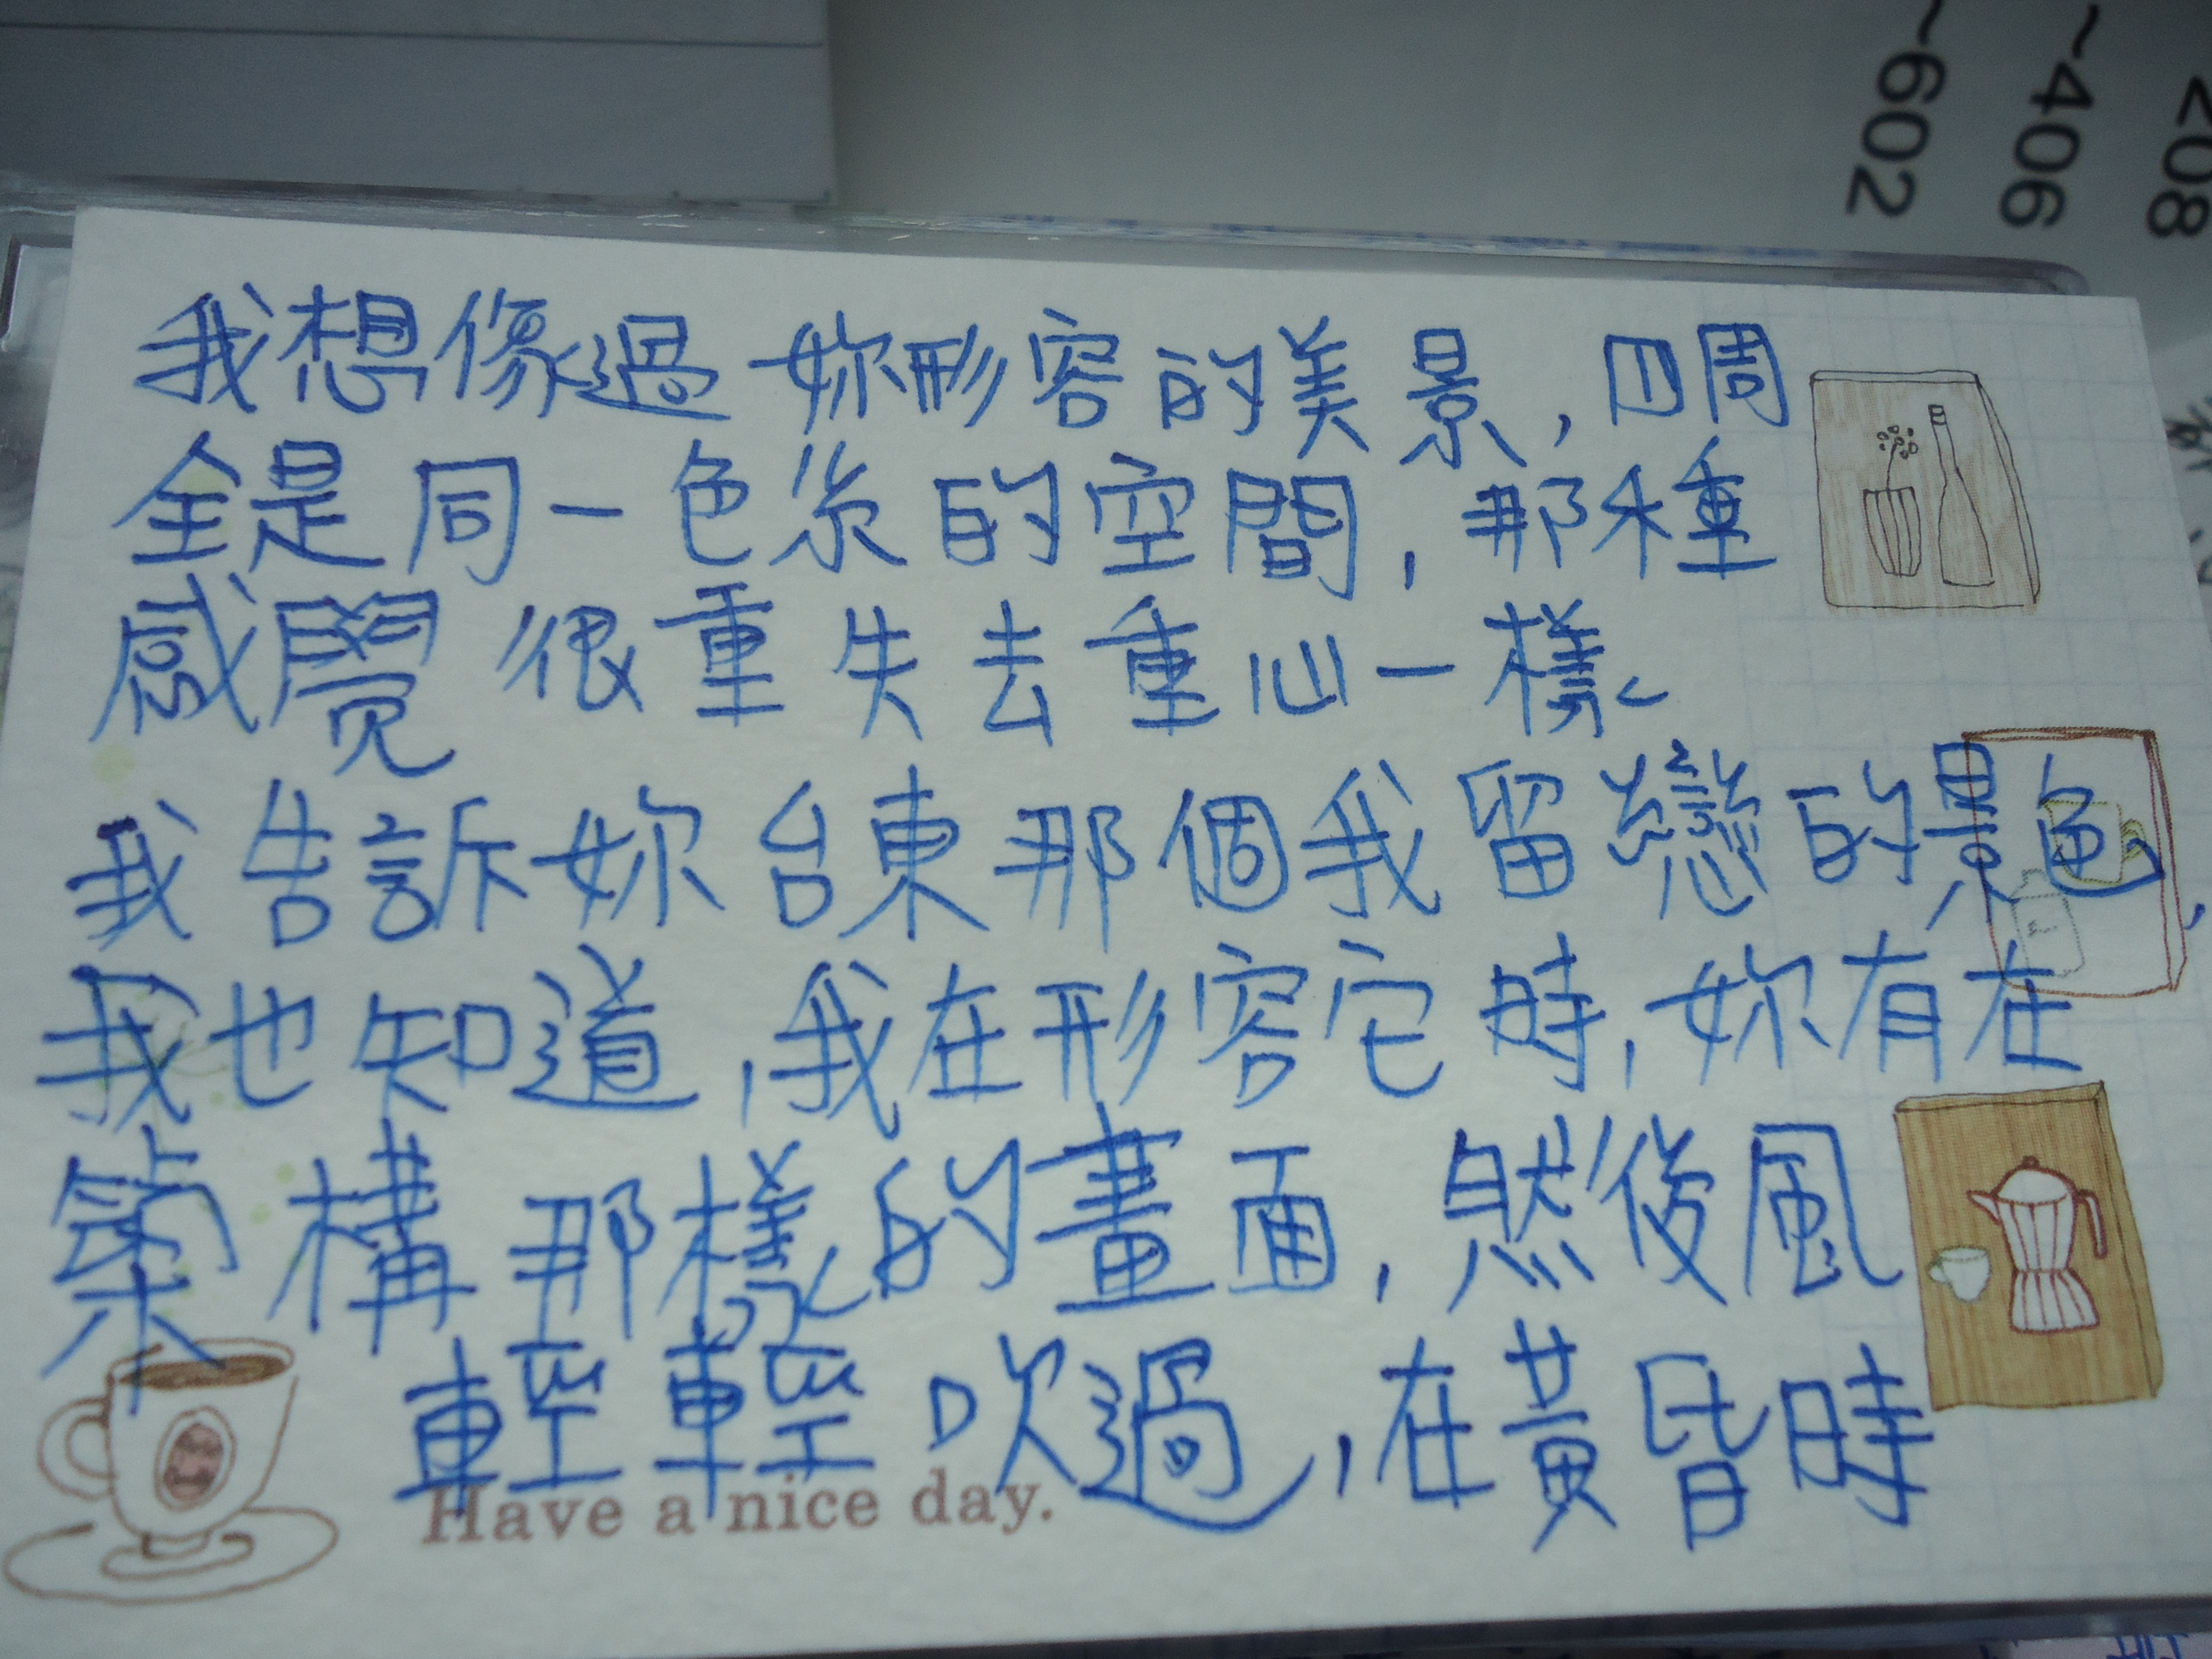 ~602
~406
<08
我想像過妳形容的美景,四周
全是同一色系的空間,那種
感覺很重失去重心一樣
我告訴妳台東那個我留戀的景色,
我也知道,我在形容它時,妳有在
築構那樣的畫面,然後風
輕輕吹過,在黃昏時
Have a nice day.